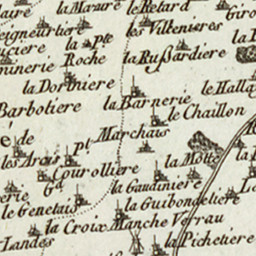 la Mazure le Retard
les Villenieres
la pte
Roche
la RuſSardiere
la Dorbniere
le Halla
Barbotiere
la Barnerie
le Chaillon
é de
Marchais
les Arcis
pt
Courolliere
la Motte
Gd
la Gaudiniere
le Genetais
la Guibonaetiere
la Croix Manche Verrau
Landes
la Pichetiere